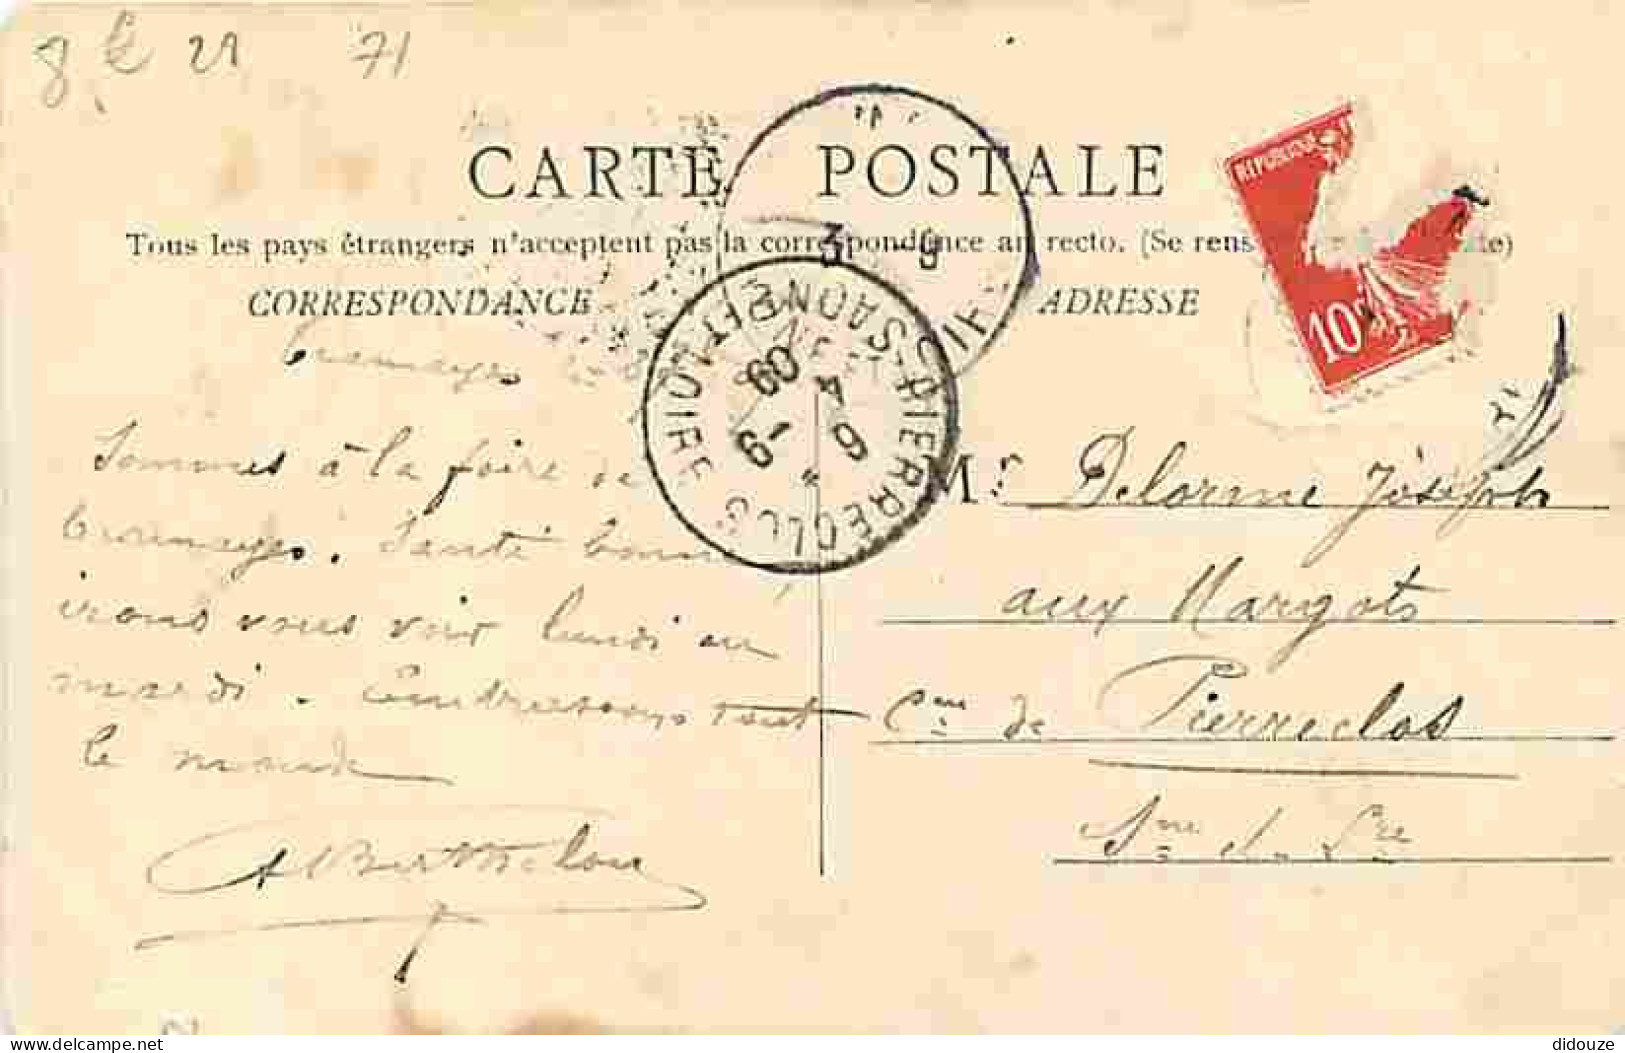 8 k 21 71
CARTE POSTALE
Tous les pays étrangers n'acceptent pas la correspondance au recto. (Se rens
CORRESPONDANCE
ADRESSE
REPUBLIQUE
10
3 9
PIERRECLOS
SAONE ET LOIRE
9 - 9
09
Tramayes
Sommes à la foire de
tramayes. Santé bonne,
irons vous voir lundi ou
mardi. Embrassons tout
le monde
ABerthelon
Mr Delorme Joseph
aux Margots
Cne de Pierreclos
Sne & Lre
didouze
delcampe.net